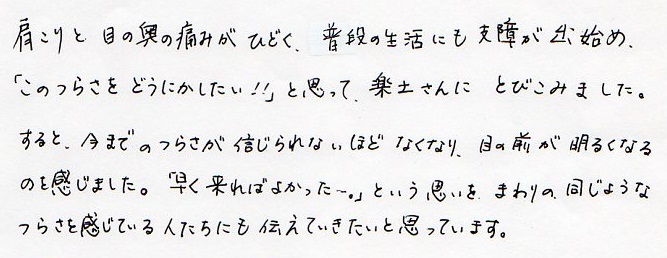 肩こりと目の奥の痛みがひどく、普段の生活にも支障が出始め、
「このつらさをどうにかしたい!!」と思って、楽土さんに とびこみました。
すると、今までのつらさが信じられないほどなくなり、目の前が明るくなる
のを感じました。「早く来ればよかった～。」という思いを、まわりの同じような
つらさを感じている人たちにも伝えていきたいと思っています。